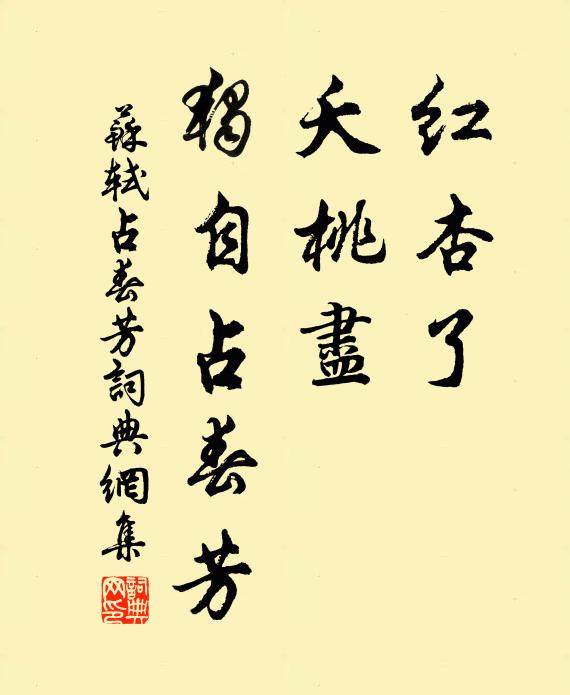 紅杏了
夭桃盡
獨自占春芳
蘇軾占春芳詞典網集
詞典網印